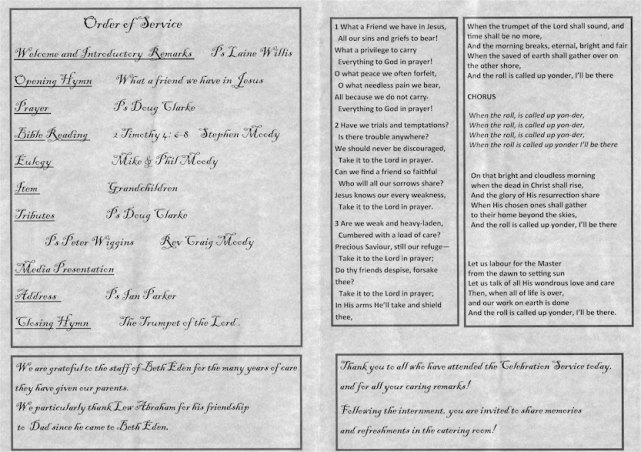 Order of Service
Welcome and Introductory Remarks Ps Laine Willis
Opening Hymn What a friend we have in Jesus
Prayer Ps Doug Clarke
Bible Reading 2 Timothy 4: 6-8 Stephen Moody
Eulogy Mike & Phil Moody
Item Grandchildren
Tributes Ps Doug Clarke
Ps Peter Wiggins Rev Craig Moody
Media Presentation
Address Ps Ian Parker
Closing Hymn The Trumpet of the Lord.
We are grateful to the staff of Beth Eden for the many years of care
they have given our parents.
We particularly thank Lew Abraham for his friendship
to Dad since he came to Beth Eden.
1 What a Friend we have in Jesus,
All our sins and griefs to bear!
What a privilege to carry
Everything to God in prayer!
O what peace we often forfeit,
O what needless pain we bear,
All because we do not carry-
Everything to God in prayer!
2 Have we trials and temptations?
Is there trouble anywhere?
We should never be discouraged,
Take it to the Lord in prayer.
Can we find a friend so faithful
Who will all our sorrows share?
Jesus knows our every weakness,
Take it to the Lord in prayer.
3 Are we weak and heavy-laden,
Cumbered with a load of care?
Precious Saviour, still our refuge—
Take it to the Lord in prayer;
Do thy friends despise, forsake
thee?
Take it to the Lord in prayer;
In His arms He'll take and shield
thee,
When the trumpet of the Lord shall sound, and
time shall be no more,
And the morning breaks, eternal, bright and fair
When the saved of earth shall gather over on
the other shore,
And the roll is called up yonder, I'll be there
CHORUS
When the roll, is called up yon-der,
When the roll, is called up yon-der,
When the roll, is called up yon-der,
When the roll is called up yonder I'll be there
On that bright and cloudless morning
when the dead in Christ shall rise,
And the glory of His resurrection share
When His chosen ones shall gather
to their home beyond the skies,
And the roll is called up yonder, I'll be there
Let us labour for the Master
from the dawn to setting sun
Let us talk of all His wondrous love and care
Then, when all of life is over,
and our work on earth is done
And the roll is called up yonder, I'll be there.
Thank you to all who have attended the Celebration Service today,
and for all your caring remarks!
Following the internment, you are invited to share memories
and refreshments in the catering room!